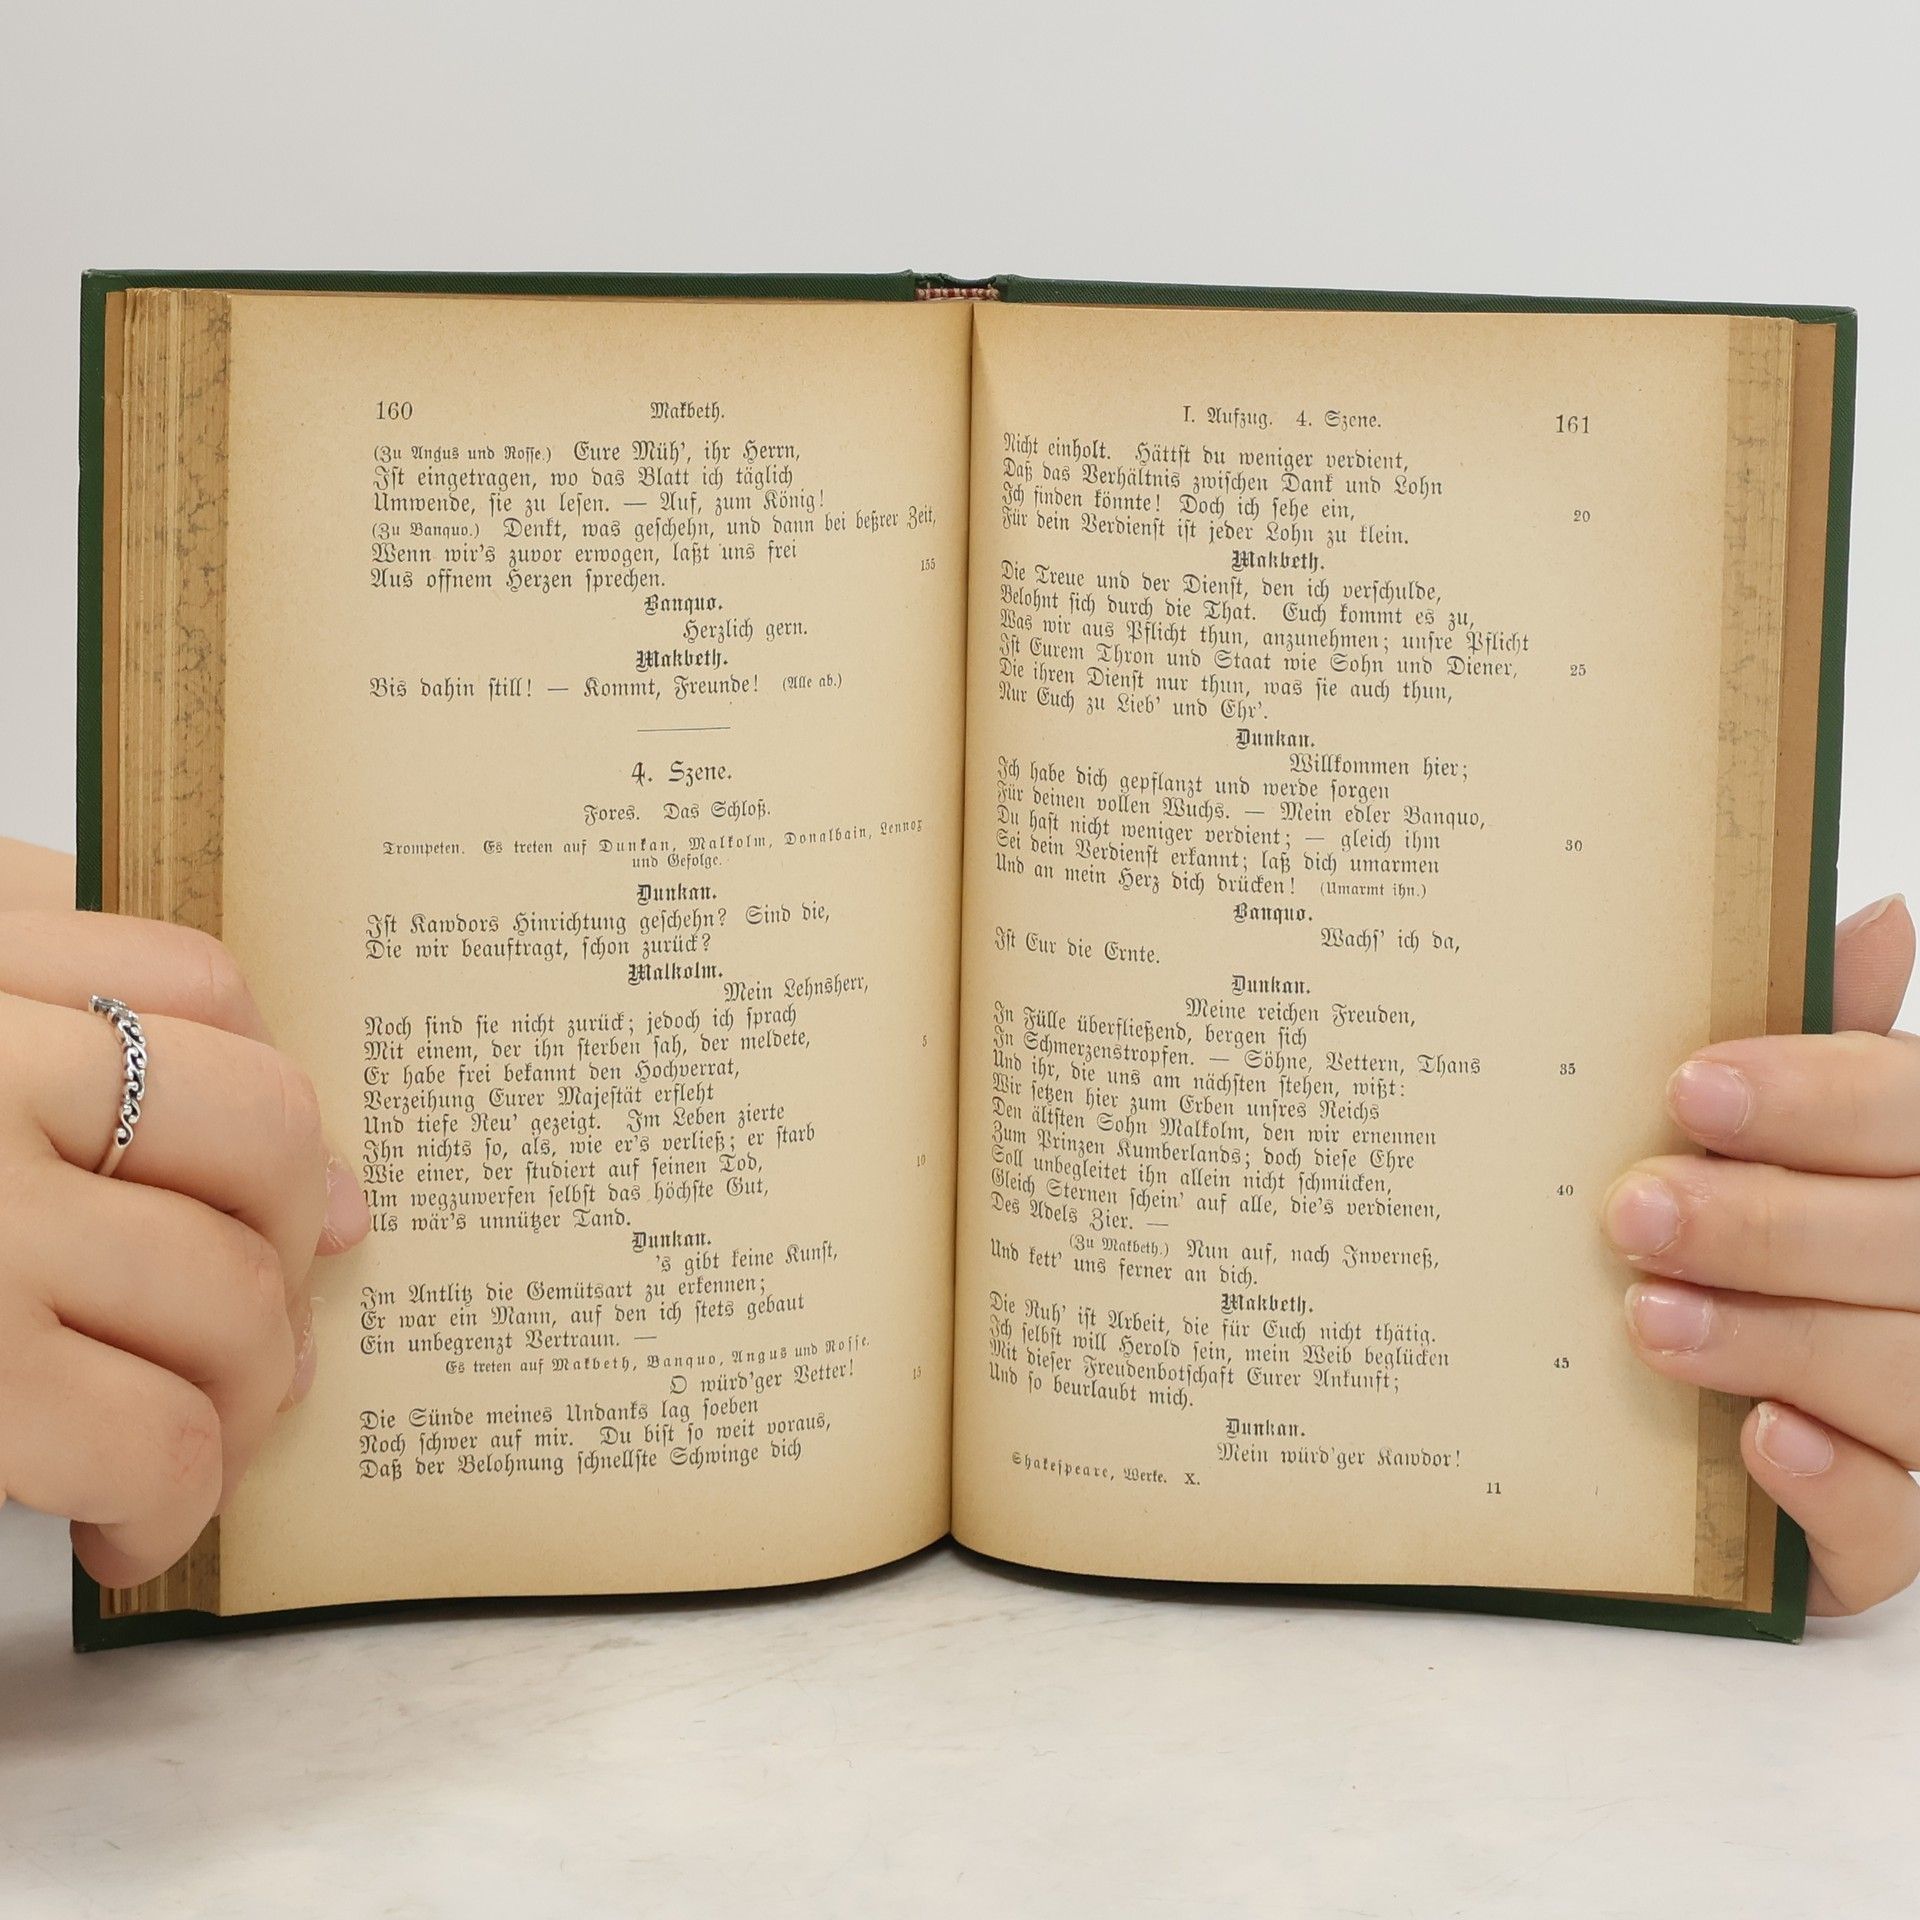 160 Makbeth.
(Zu Angus und Rosse.) Eure Müh', ihr Herrn,
Ist eingetragen, wo das Blatt ich täglich
Umwende, sie zu lesen. — Auf, zum König!
(Zu Banquo.) Denkt, was geschehn, und dann bei beßrer Zeit,
Wenn wir's zuvor erwogen, laßt uns frei
Aus offnem Herzen sprechen. 155
Banquo.
Herzlich gern.
Makbeth.
Bis dahin still! — Kommt, Freunde! (Alle ab.)
4. Szene.
Fores. Das Schloß.
Trompeten. Es treten auf Dunkan, Malkolm, Donalbain, Lennox
und Gefolge.
Dunkan.
Ist Kawdors Hinrichtung geschehn? Sind die,
Die wir beauftragt, schon zurück?
Malkolm.
Mein Lehnsherr,
Noch sind sie nicht zurück; jedoch ich sprach
Mit einem, der ihn sterben sah, der meldete, 5
Er habe frei bekannt den Hochverrat,
Verzeihung Eurer Majestät erfleht
Und tiefe Reu' gezeigt. Im Leben zierte
Ihn nichts so, als, wie er's verließ; er starb
Wie einer, der studiert auf seinen Tod, 10
Um wegzuwerfen selbst das höchste Gut,
Als wär's unnützer Tand.
Dunkan.
's gibt keine Kunst,
Im Antlitz die Gemütsart zu erkennen;
Er war ein Mann, auf den ich stets gebaut
Ein unbegrenzt Vertraun. —
Es treten auf Makbeth, Banquo, Angus und Rosse.
O würd'ger Vetter! 15
Die Sünde meines Undanks lag soeben
Noch schwer auf mir. Du bist so weit voraus,
Daß der Belohnung schnellste Schwinge dich
I. Aufzug. 4. Szene. 161
Nicht einholt. Hättst du weniger verdient,
Daß das Verhältnis zwischen Dank und Lohn
Ich finden könnte! Doch ich sehe ein, 20
Für dein Verdienst ist jeder Lohn zu klein.
Makbeth.
Die Treue und der Dienst, den ich verschulde,
Belohnt sich durch die That. Euch kommt es zu,
Was wir aus Pflicht thun, anzunehmen; unsre Pflicht
Ist Eurem Thron und Staat wie Sohn und Diener, 25
Die ihren Dienst nur thun, was sie auch thun,
Nur Euch zu Lieb' und Ehr'.
Dunkan.
Willkommen hier;
Ich habe dich gepflanzt und werde sorgen
Für deinen vollen Wuchs. — Mein edler Banquo,
Du hast nicht weniger verdient; — gleich ihm 30
Sei dein Verdienst erkannt; laß dich umarmen
Und an mein Herz dich drücken! (Umarmt ihn.)
Banquo.
Wachs' ich da,
Ist Eur die Ernte.
Dunkan.
Meine reichen Freuden,
In Fülle überfließend, bergen sich
In Schmerzenstropfen. — Söhne, Vettern, Thans 35
Und ihr, die uns am nächsten stehen, wißt:
Wir setzen hier zum Erben unsres Reichs
Den ältsten Sohn Malkolm, den wir ernennen
Zum Prinzen Kumberlands; doch diese Ehre
Soll unbegleitet ihn allein nicht schmücken, 40
Gleich Sternen schein' auf alle, die's verdienen,
Des Adels Zier. —
(Zu Makbeth.) Nun auf, nach Inverneß,
Und kett' uns ferner an dich.
Makbeth.
Die Ruh' ist Arbeit, die für Euch nicht thätig.
Ich selbst will Herold sein, mein Weib beglücken 45
Mit dieser Freudenbotschaft Eurer Ankunft;
Und so beurlaubt mich.
Dunkan.
Mein würd'ger Kawdor!
Shakespeare, Werke. X. 11